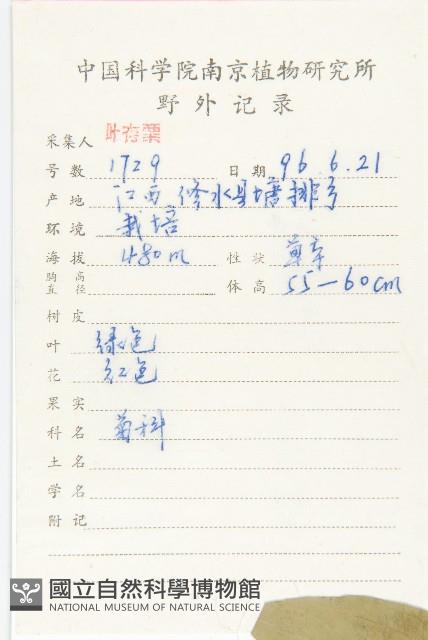 中国科学院南京植物研究所
野外记录
采集人 叶存粟
号数 1729 日期 96.6.21
产地 江西修水县塘排
环境 栽培
海拔 480m 性状 草本
胸高直径 体高 55—60cm
树皮
叶 绿色
花 红色
果实
科名 菊科
土名
学名
附记
國立自然科學博物館
NATIONAL MUSEUM OF NATURAL SCIENCE